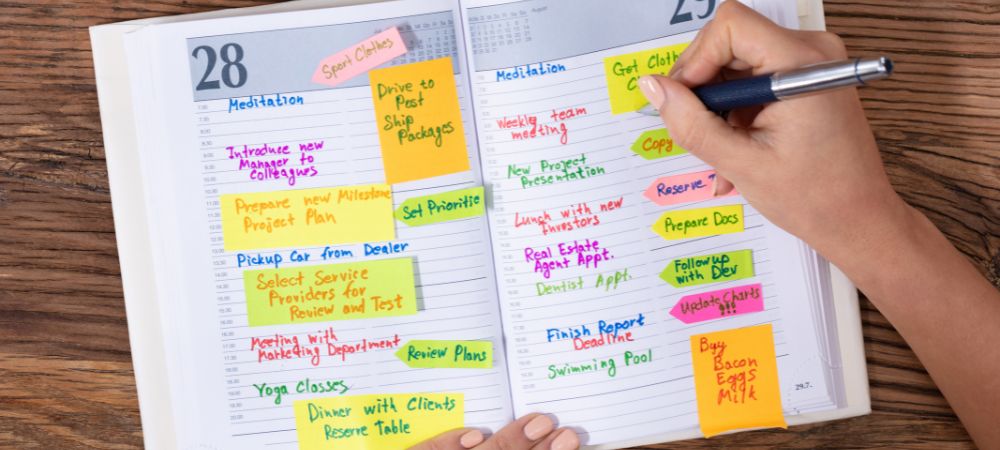 28
Sport Clothes
Drive to
Post
Ship
Packages
Meditation
Introduce new
Manager to
Colleagues
Prepare new Milestone
Project Plan
Set Prioritie
Pickup Car from Dealer
Select Service
Providers for
Review and Test
Meeting with
Marketing Department
Review Plans
Yoga Classes
Dinner with Clients
Reserve Table
29
August
Meditation
Get Cloth
Weekly team
meeting
Copy
New Project
Presentation
Reserve
Lunch with new
Investors
Prepare Docs
Real Estate
Agent Appt.
Followup
with Dev
Dentist Appt.
Update Charts
!!!
Finish Report
Deadline
Swimming Pool
Buy
Bacon
Eggs
Milk
29.7.